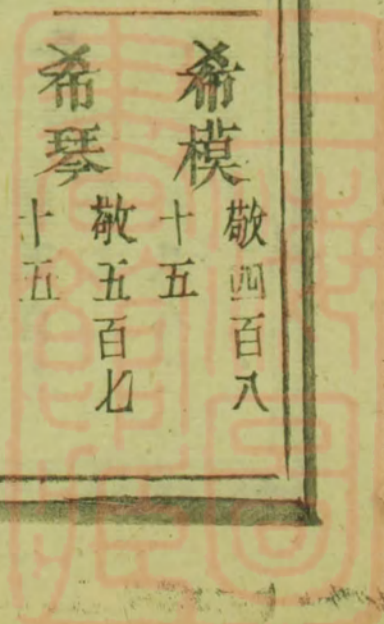 希模
敬四百八
十五
希琴
敬五百七
十五